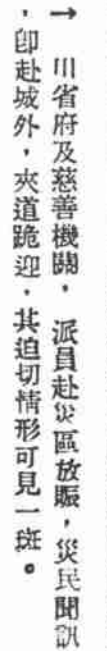 → 川省府及慈善機關，派員赴災區放賑，災民聞訊
，卽赴城外，夾道跪迎，其迫切情形可見一斑。